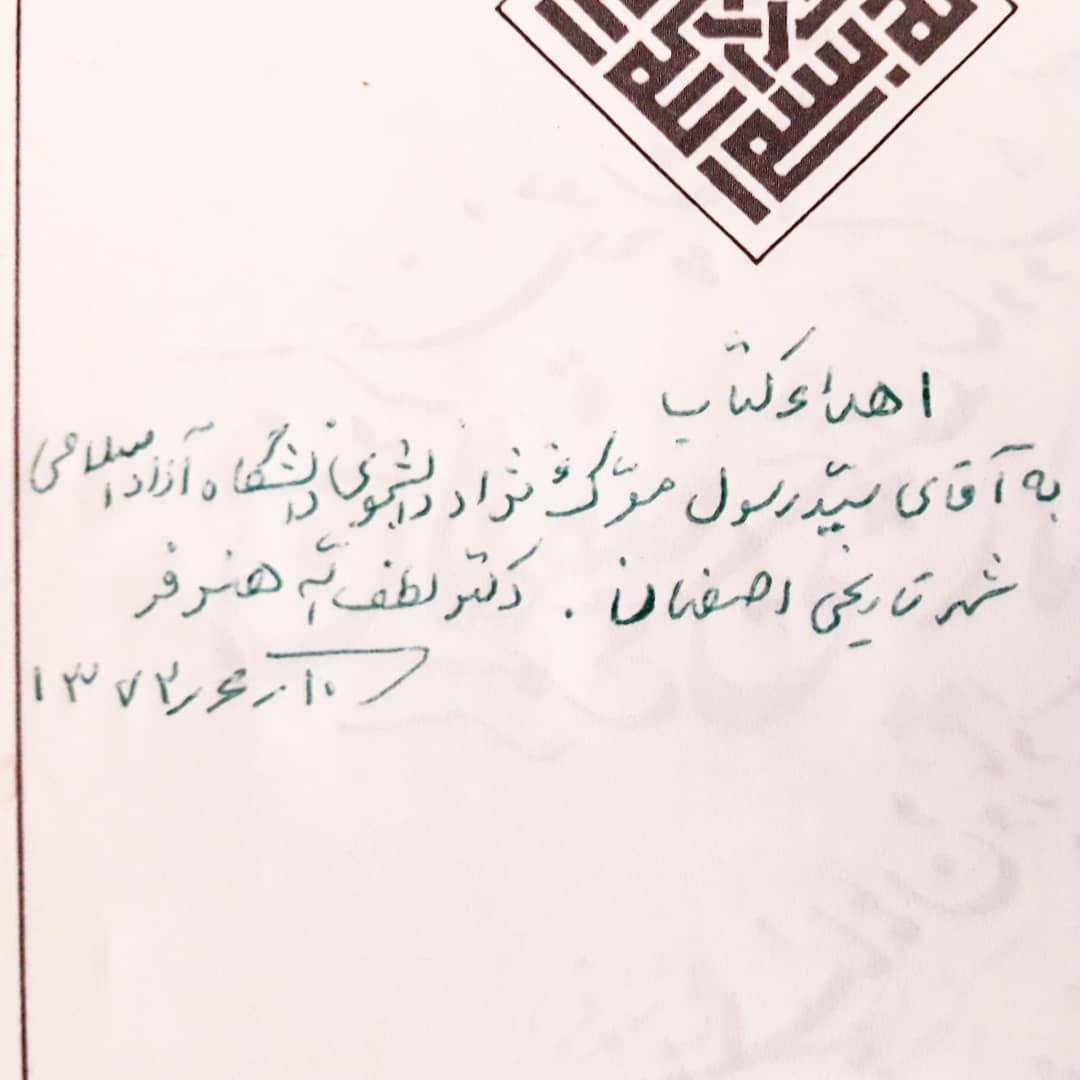 بسم الله
اهداء کتاب
به آقای سیّد رسول موسوی نژاد دانشجوی دانشگاه آزاد اسلامی
شهر تاریخی اصفهان . دکتر لطف الله هنرفر
۱۰ر۶ر۱۳۷۳